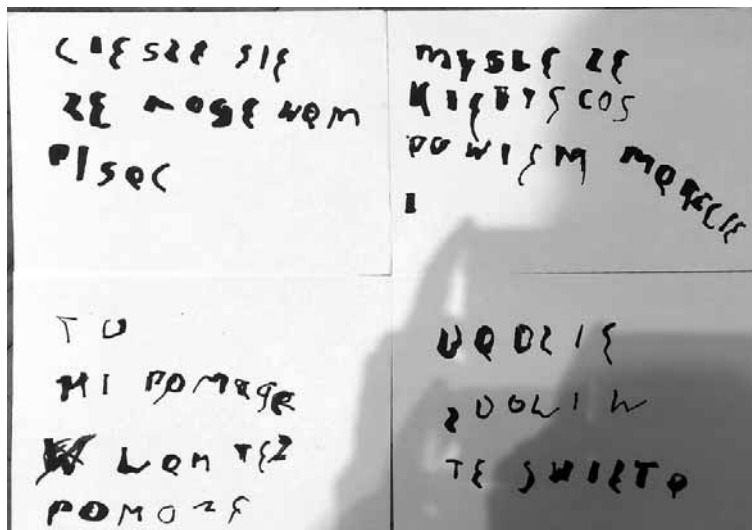 CIESZE SIE
ZE MOGE WAM
PISAC
MYSLE ZE
KIEDYS COS
POWIEM MARCIE
I
TO
MI POMAGE
W WAM TEZ
POMOZE
BADZIE
ZDOWIW
TE SWIETA